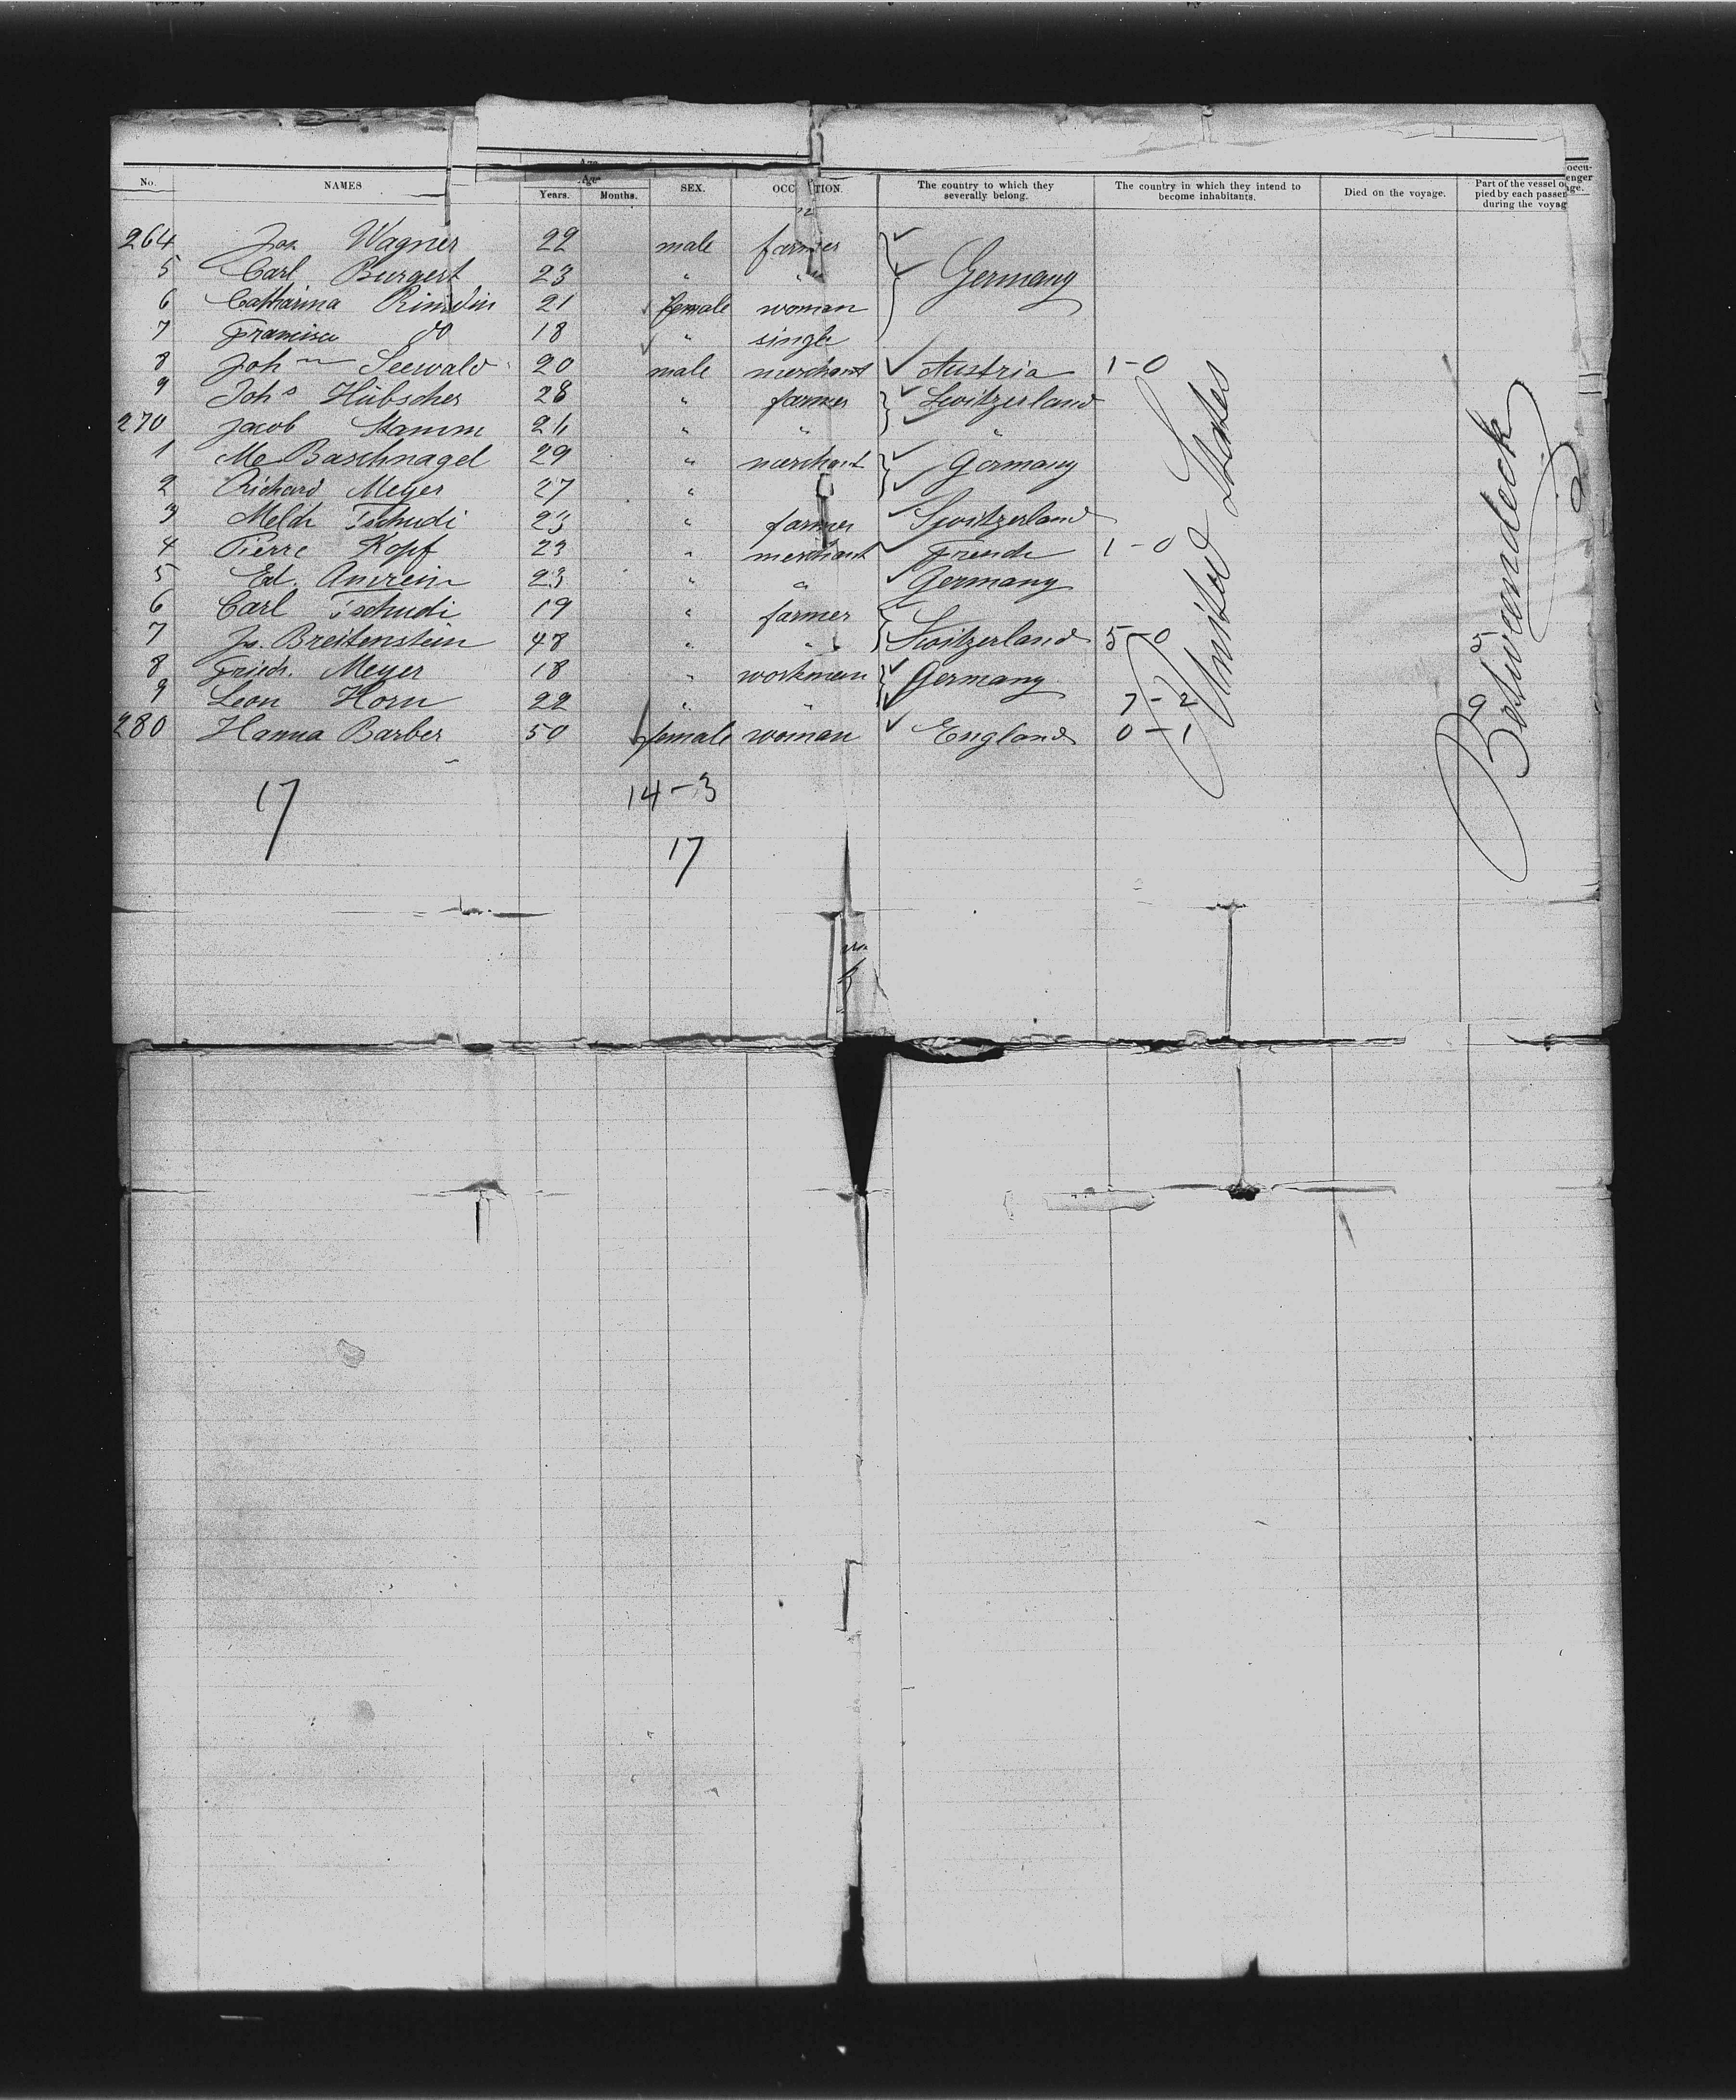 Age
Age
No. NAMES Years. Months. SEX. OCCUPATION. The country to which they severally belong. The country in which they intend to become inhabitants. Died on the voyage. Part of the vessel occupied by each passenger during the voyage.
264 Jos Wagner 22 male farmer
5 Carl Burgert 23 " " Germany
6 Catharina 21 female woman
7 Francisca do 18 " single
8 Joh Seewald 20 male merchant Austria 1-0
9 Johs Hübscher 28 " farmer Switzerland
270 Jacob Stamm 24 " " "
1 Me Baschnagel 29 " merchant Germany
2 Richard Meyer 27 "
3 Melch Tschudi 23 " farmer Switzerland
4 Pierre Kopf 23 " merchant French 1-0
5 Ed. Amrein 23 " " Germany
6 Carl Tschudi 19 " farmer
7 Jo. Breitenstein 48 " " Switzerland 5-0
8 Friedr. Meyer 18 " workmen Germany
9 Leon Horn 22 " " 7-2
280 Hanna Barber 50 female woman England 0-1
United States
Betweendeck
17 14-3
17